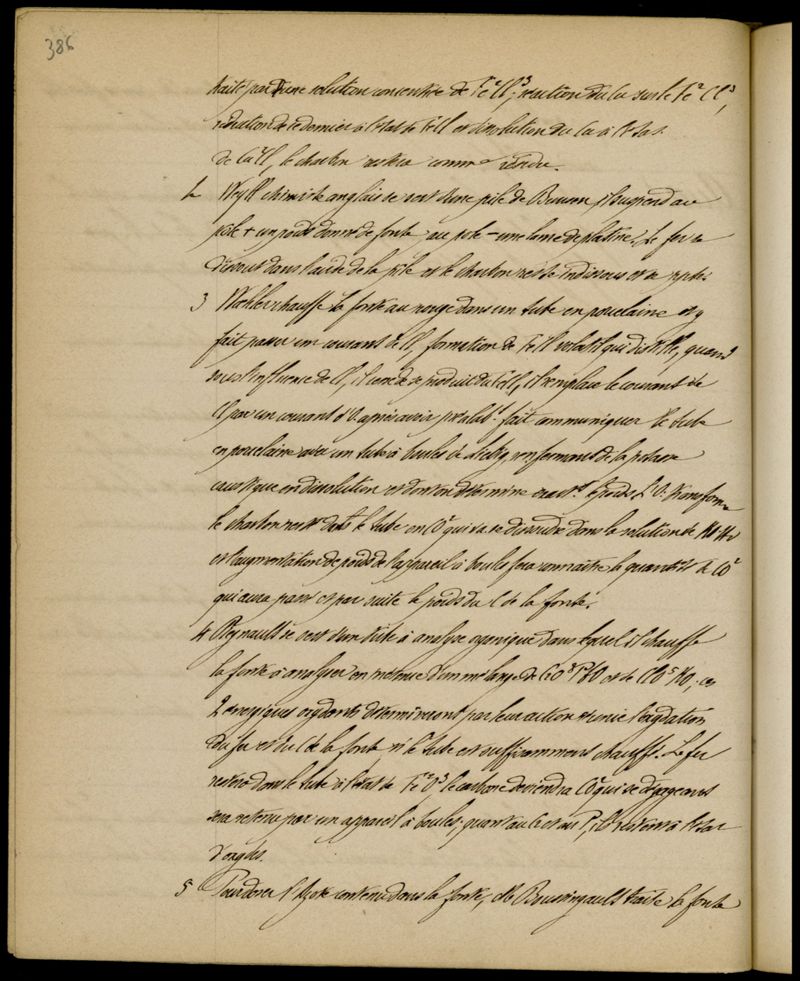 386
traité par d'une solution concentrée de Fe²Cl³, réaction du Cu sur le Fe²Cl³,
réduction de ce dernier à l'état de FeCl et dissolution du Cu à l'état
de Cu²Cl, le charbon restera comme résidu.
2 Weyll chimiste anglais se sert d'une pile de Bunsen, il suspend au
pôle + un poids donné de fonte au pôle – une lame de platine. Le fer se
dissout dans l'acide de la pile et le charbon reste indissous et se
3 Wœhler chauffe la fonte au rouge dans un tube en porcelaine et y
fait passer un courant de Cl, formation de FeCl volatil qui distille, quand
sous l'influence de Cl, il cesse de se produire du FeCl, il remplace le courant de
Cl par un courant d'O après avoir préalabt fait communiquer le tube
en porcelaine avec un tube à boules de Liebig renfermant de la potasse
caustique en dissolution et dont on détermine exactt le poids. L'O. transforme
le charbon resté dans le tube en CO² qui va se dissoudre dans la solution de KO.HO
et l'augmentation de poids de l'appareil à boules fera connaître la quantité de CO²
qui aura passé et par suite le poids du C de la fonte.
4 Regnault se sert d'un tube à analyse organique dans lequel il chauffe
la fonte à analyser en présence d'un mélange de CrO³PbO et de ClO⁵KO, ces
2 énergiques oxydants détermineront par leur action réunie l'oxydation
du fer et du C de la fonte si le tube est suffisamment chauffé. Le fer
restera dans le tube à l'état de Fe²O³ le carbone deviendra CO² qui se dégageant
sera retenu par un appareil à boules, quant au et au P, ils restent à l'état
d'oxydes.
5 Pour doser l'Azote contenu dans la fonte, Mr Boussingault traite la fonte